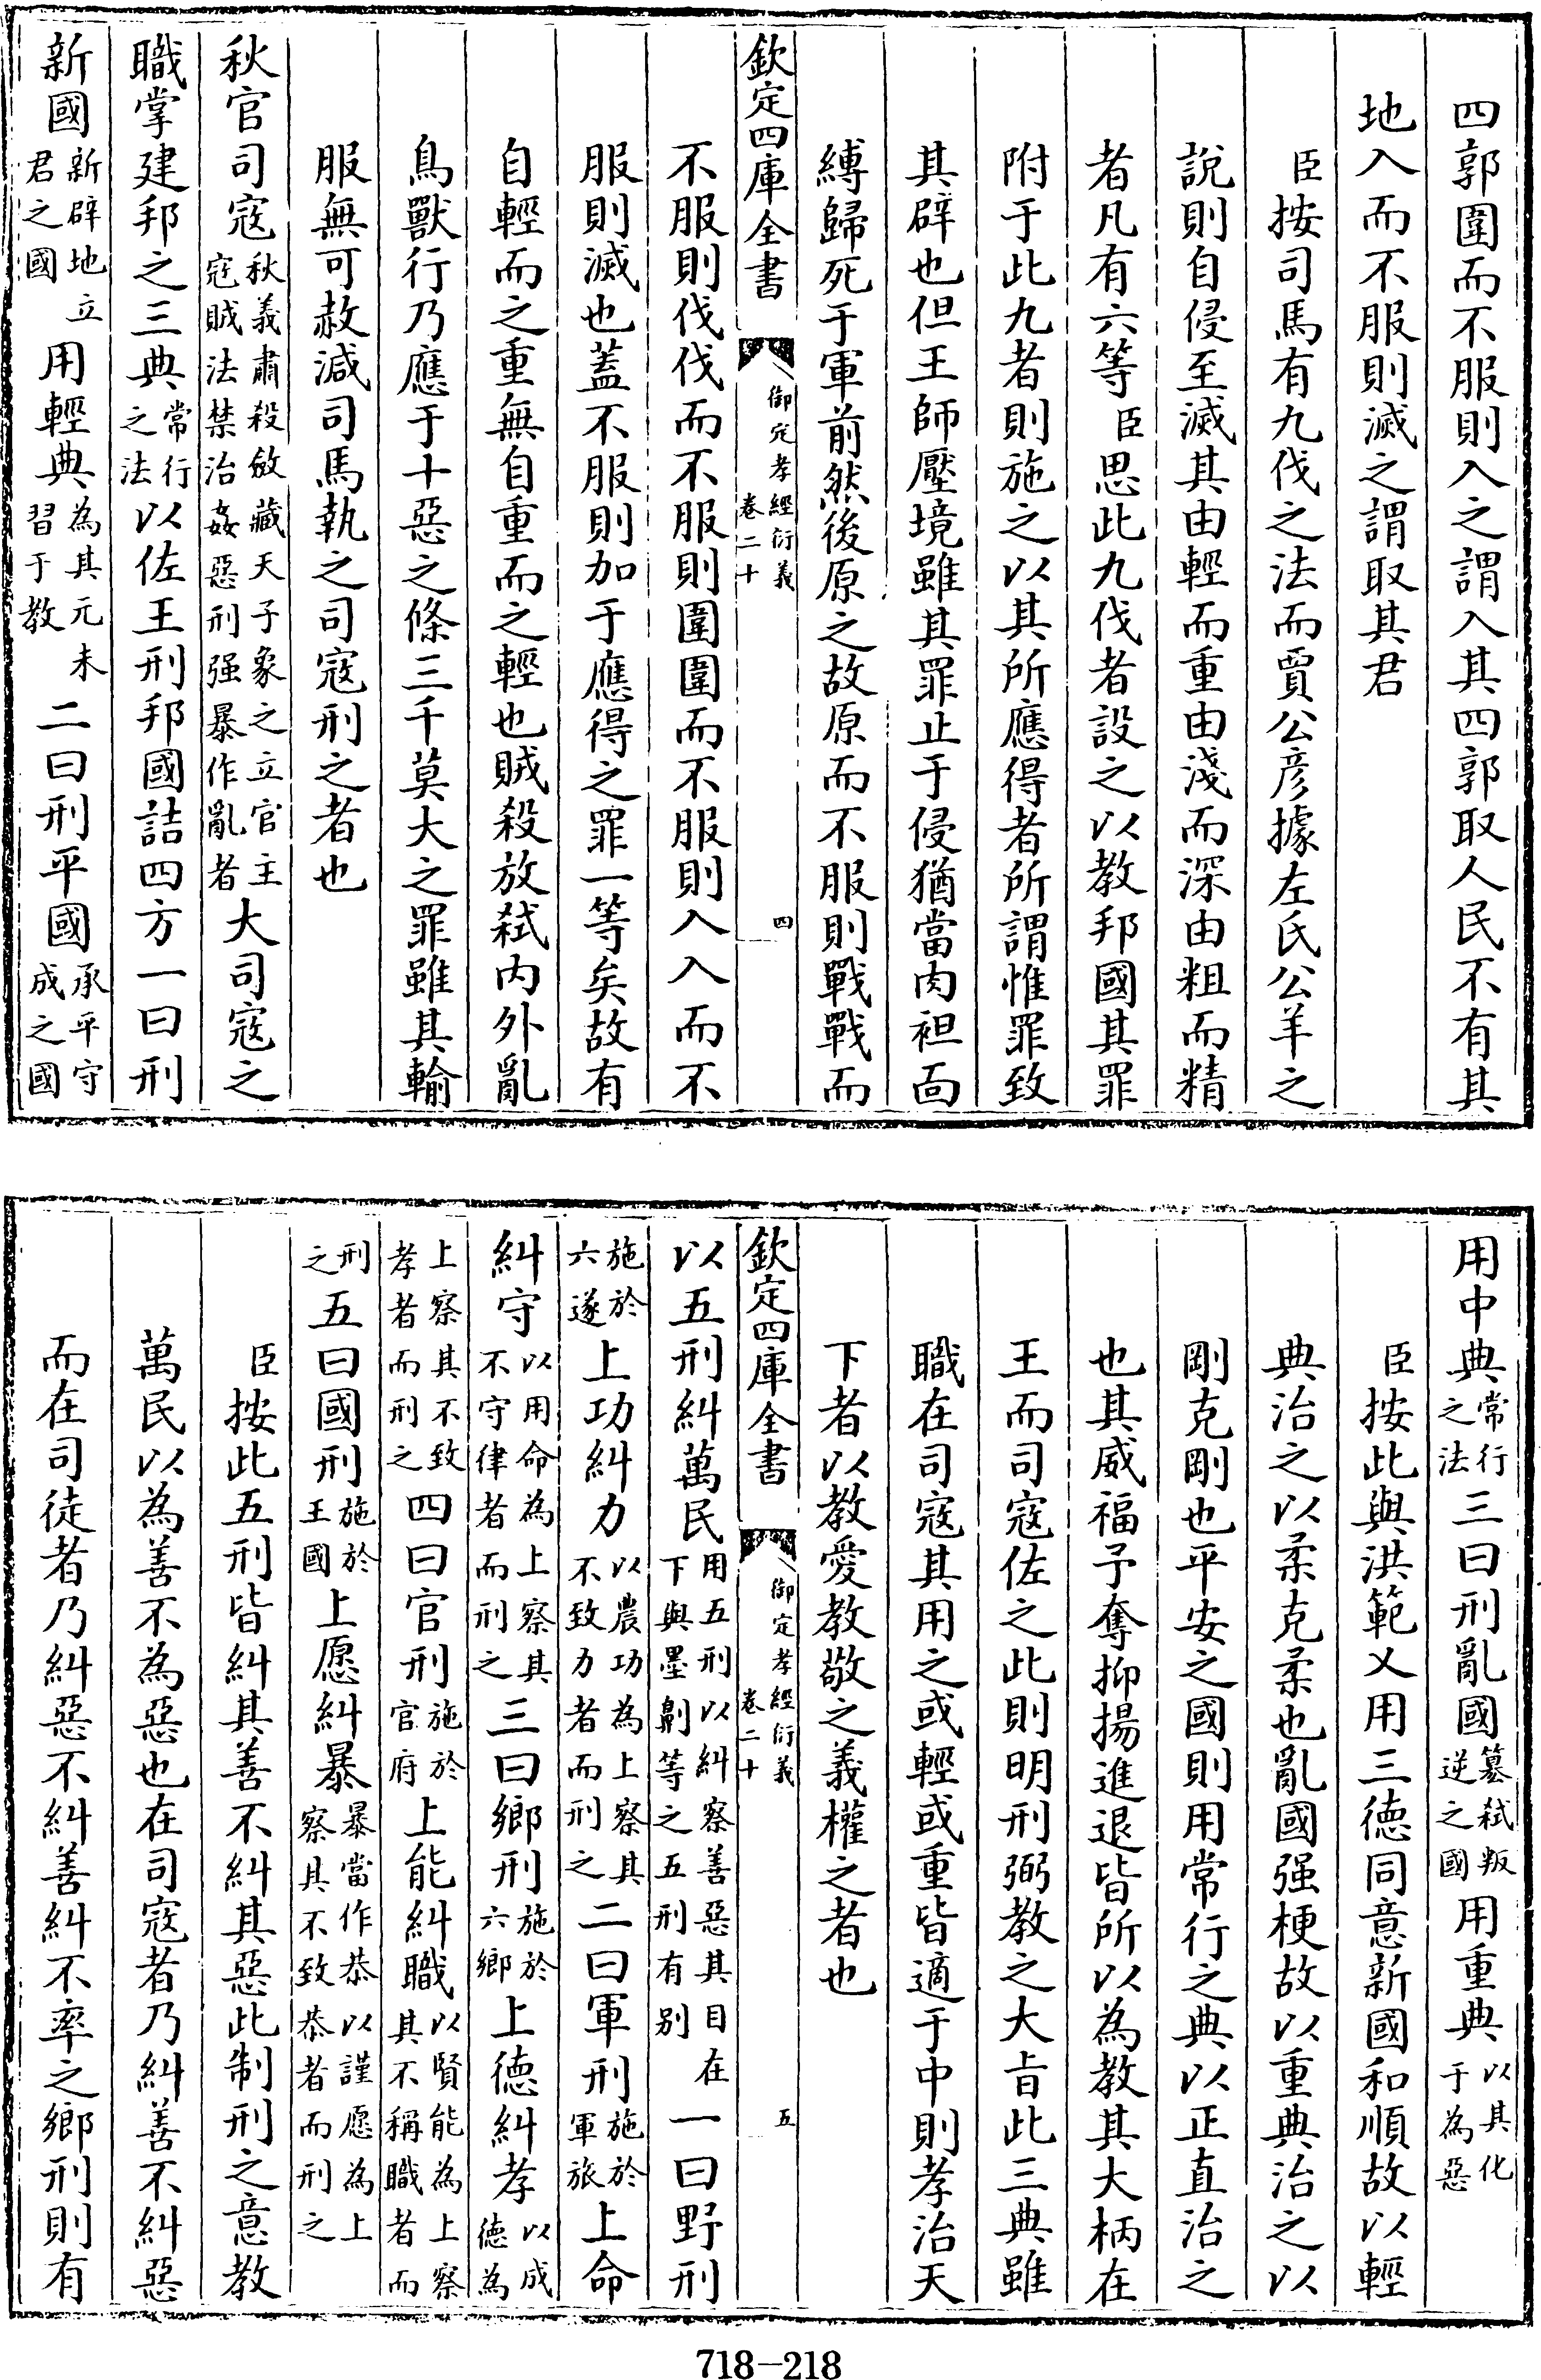 四郭圍而不服則入之謂入其四郭取人民不有其
地入而不服則滅之謂取其君
臣按司馬有九伐之法而賈公彦據左氏公羊之
說則自侵至滅其由輕而重由淺而深由粗而精
者凡有六等臣思此九伐者設之以教邦國其罪
附于此九者則施之以其所應得者所謂惟罪致
其辟也但王師壓境雖其罪止于侵猶當肉袒面
縛歸死于軍前然後原之故原而不服則戰戰而
欽定四庫全書 御定孝經衍義 卷二十 四
不服則伐伐而不服則圍圍而不服則入入而不
服則滅也蓋不服則加于應得之罪一等矣故有
自輕而之重無自重而之輕也賊殺放弑内外亂
鳥獸行乃應于十惡之條三千莫大之罪雖其輸
服無可赦減司馬執之司寇刑之者也
秋官司寇秋義肅殺斂藏天子象之立官主寇賊法禁治姦惡刑强暴作亂者大司寇之
職掌建邦之三典常行之法以佐王刑邦國詰四方一曰刑
新國新辟地立君之國用輕典為其元未習于教二曰刑平國承平守成之國
用中典常行之法三曰刑亂國簒弑叛逆之國用重典以其化于為惡
臣按此與洪範乂用三德同意新國和順故以輕
典治之以柔克柔也亂國强梗故以重典治之以
剛克剛也平安之國則用常行之典以正直治之
也其威福予奪抑揚進退皆所以為教其大柄在
王而司寇佐之此則明刑弼教之大旨此三典雖
職在司寇其用之或輕或重皆適于中則孝治天
下者以教愛教敬之義權之者也
欽定四庫全書 御定孝經衍義 卷二十 五
以五刑糾萬民用五刑以糾察善惡其目在下與墨劓等之五刑有别一曰野刑
施於六遂上功糾力以農功為上察其不致力者而刑之二曰軍刑施於軍旅上命
糾守以用命為上察其不守律者而刑之三曰鄉刑施於六鄉上德糾孝以成德為
上察其不致孝者而刑之四曰官刑施於官府上能糾職以賢能為上察其不稱職者而
刑之五曰國刑施於王國上愿糾暴暴當作恭以謹愿為上察其不致恭者而刑之
臣按此五刑皆糾其善不糾其惡此制刑之意教
萬民以為善不為惡也在司寇者乃糾善不糾惡
而在司徒者乃糾惡不糾善糾不率之鄉刑則有
718-218